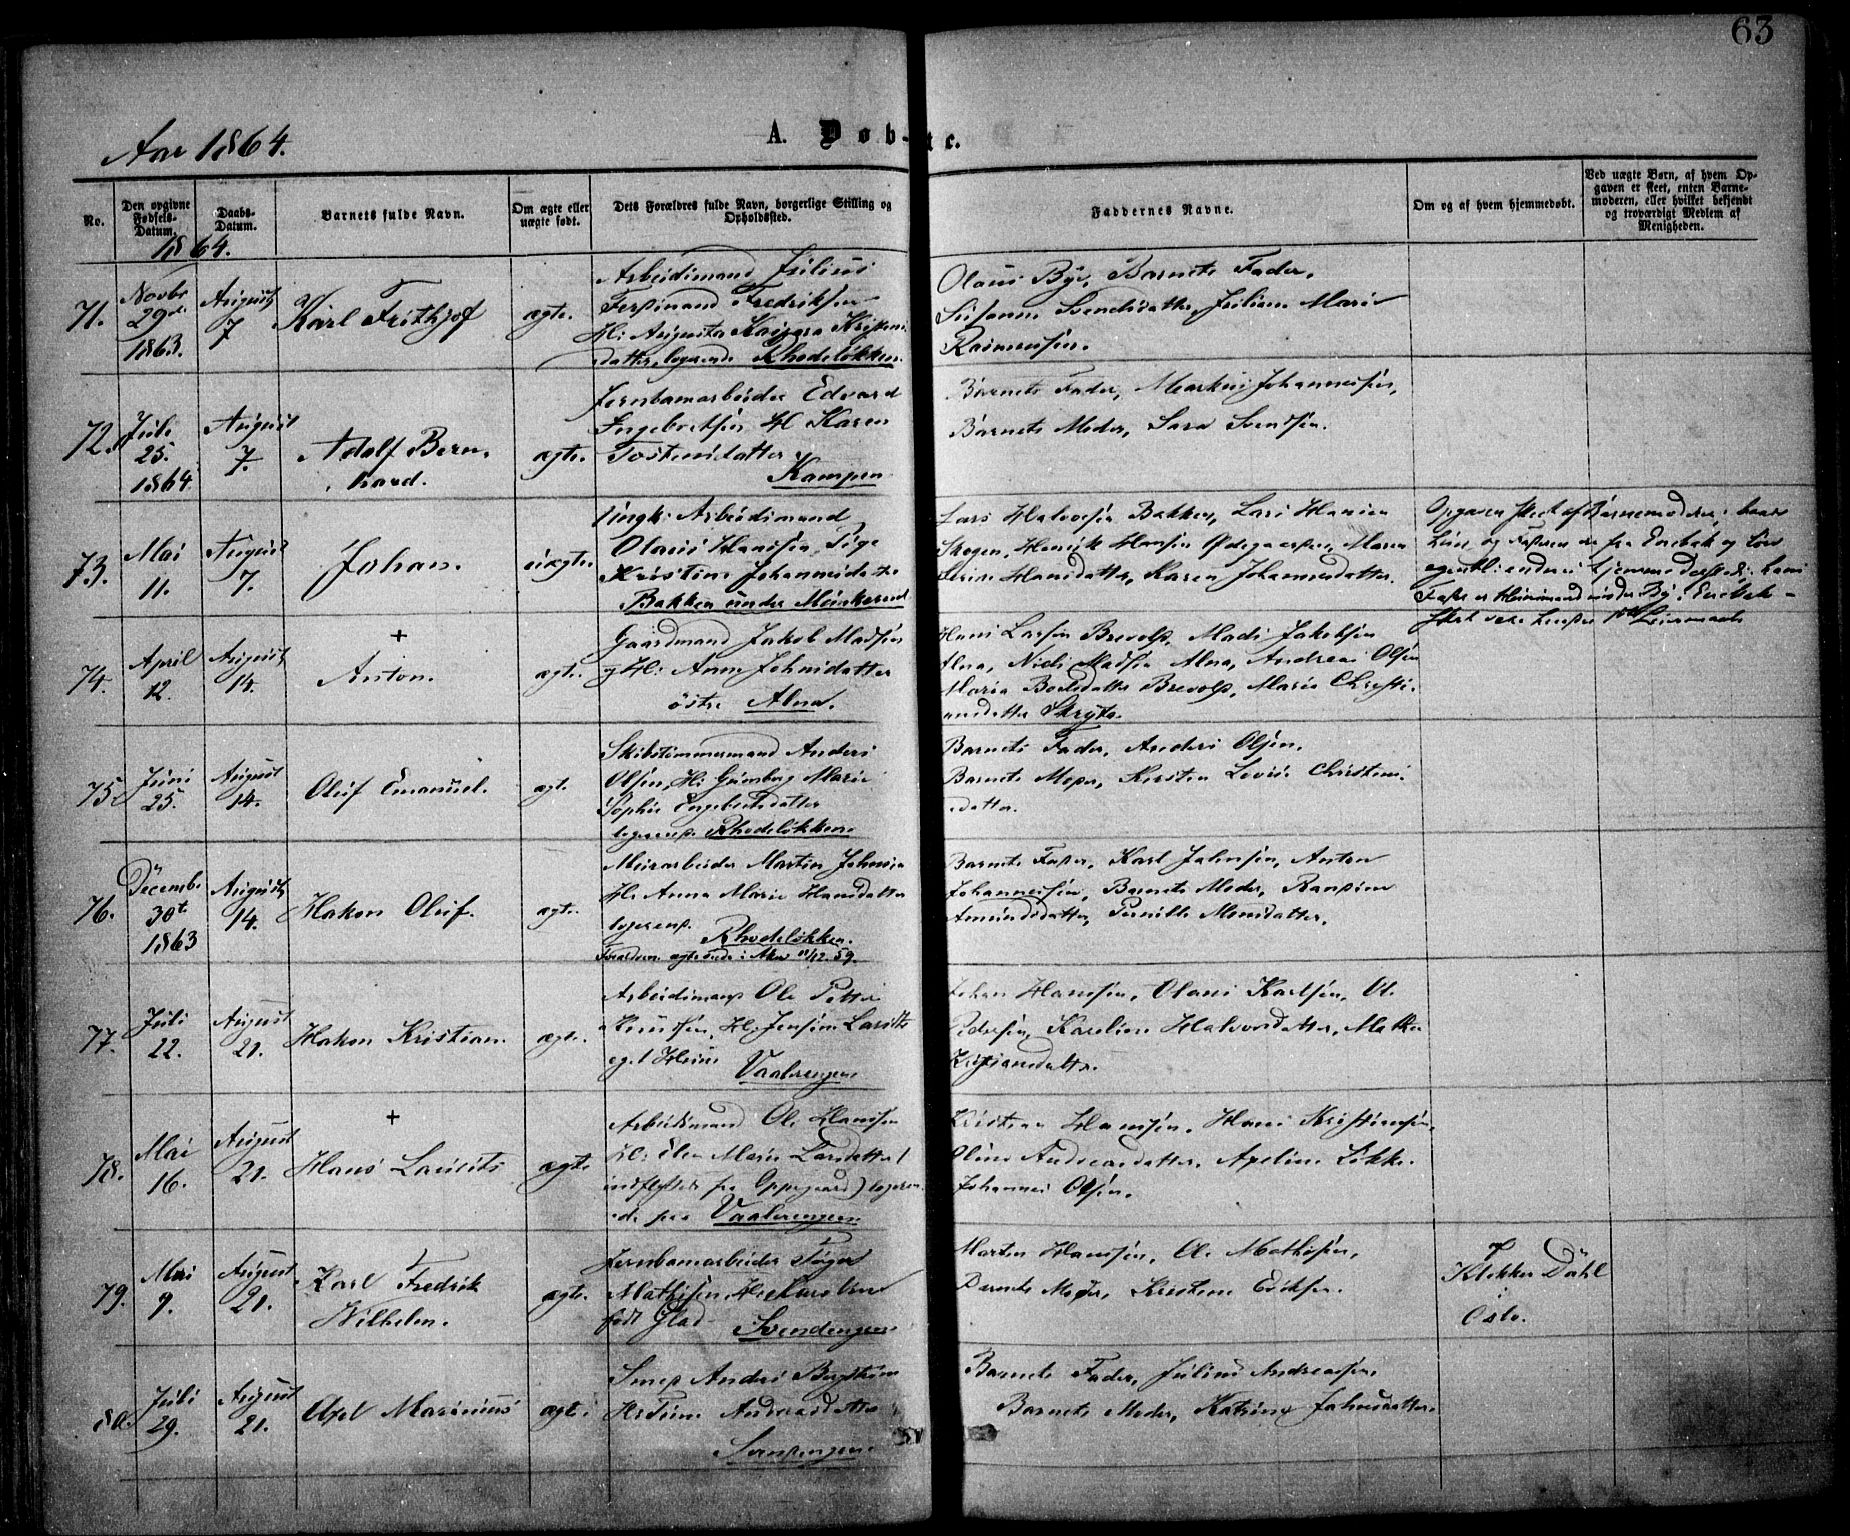 63
Aar 1864.
A. Døb- te.
No.
Den opgivne Fødsels-Datum.
Daabs-Datum.
Barnets fulde Navn.
Om ægte eller uægte født.
Dets Forældres fulde Navn, borgerlige Stilling og Opholdssted.
Faddernes Navne.
Om og af hvem hjemmedøbt.
Ved uægte Børn, af hvem Opgaven er skeet, enten Barnemoderen, eller hvilket bekjendt og troværdigt Medlem af Menigheden.
1864.
71.
Novbr
29de
1863.
August
7
Karl Frithjof
ægte.
Arbeidsmand Julius
Ferdinand Fredriksen
H: Augusta Kristens
datter, logerende Rhodeløkken.
Olaus Bye, Barnets Fader,
Susanne Svendsdatter, Juliane Marie
Rasmussen.
72.
Juli
25.
1864
August
7.
Adolf Bern
hard.
ægte.
Jernbanearbeider Edvard
Ingebretsen H. Karen
Tostensdatter
Kampen
Barnets Fader, Markus Johannesen,
Barnets Moder, Sara Svendsen.
73.
Mai
11.
August
7.
Johan.
uægte.
Ungk: Arbeidsmand
Olaus Hansen, Pige
Kristine Johannesdatter
Bakken under Munkerud
Lars Halvorsen Bakken, Lars Hansen
Skogen, Henrik Hansen Ødegaarden, Maren
Hansdatter, Karen Johannesdatter.
Opgaven skeet af Barnemoderen;
og Faderen er fra Enebak og
Fader er Huusmand under By i Enebak
74.
April
12.
August
14.
+
Anton.
ægte.
Gaardmand Jakob Madsen
og H: Anne Johnsdatter
østre Alna.
Hans Larsen Brevold, Mads Jakobsen
Alna, Niels Madsen Alna, Andreas Olsen
Maria Brevold, Marie Christi
ansdatter
75
Juni
25.
August
14.
Oluf Emanuel.
ægt.
Skibstømmermand Anders
Olsen, H: Gunborg Marie
Sophie Engebretsdatter
logerend. Rhodeløkken.
Barnets Fader, Anders Olsen.
Barnets Moder, Kirsten Lovise Christens
datter.
76.
Decembr
30te
1863
August
14.
Hakon Oluf.
ægte.
Murarbeider Martin Johnsen
H: Anna Marie Hansdatter
logerend.
Rhodeløkken.
Forældrene ægteviede i Aker 11/12 59.
Barnets Fader, Karl Johnsen, Anton
Johannesen, Barnets Moder,
Amundsdatter, Pernille Monsdatter.
77.
Juli
22.
August
21.
Hakon Kristian.
ægte.
Arbeidsmand Ole Petter
Knudsen, H: Larsdtr
eget Huus
Vaalerengen
Johan Hansen, Olaus Karlsen, Ole
Pedersen, Karoline Halvorsdatter, Mathea
Kristiansdatter.
78.
Mai
16.
August
21.
+
Hans Laurits
ægte
Arbeidsmand Ole Hansen
H: Elen Marie Larsdatter (
indflyttet fra Oppegaard) logeren
de paa Vaalerengen
Kristian Hansen, Hans Kristensen,
Oline Andreasdatter, Løkke.
Johannes Olsen.
79.
Mai
9.
August
21.
Karl Fredrik
Wilhelm.
ægte.
Jernbanearbeider
Mathisen, H: Karoline
født Glad
Svendengen
Morten Hansen, Ole Mathisen,
Barnets Moder, Kristine Eriksen.
Klokker Dahl
i
Oslo.
80.
Juli
29.
August
21.
Axel Marinius
ægte
Smed Anders Bergstrøm
Andreasdatter
Svendengen.
Barnets Fader, Julius Andreassen.
Barnets Moder, Katrine Johnsdatter.